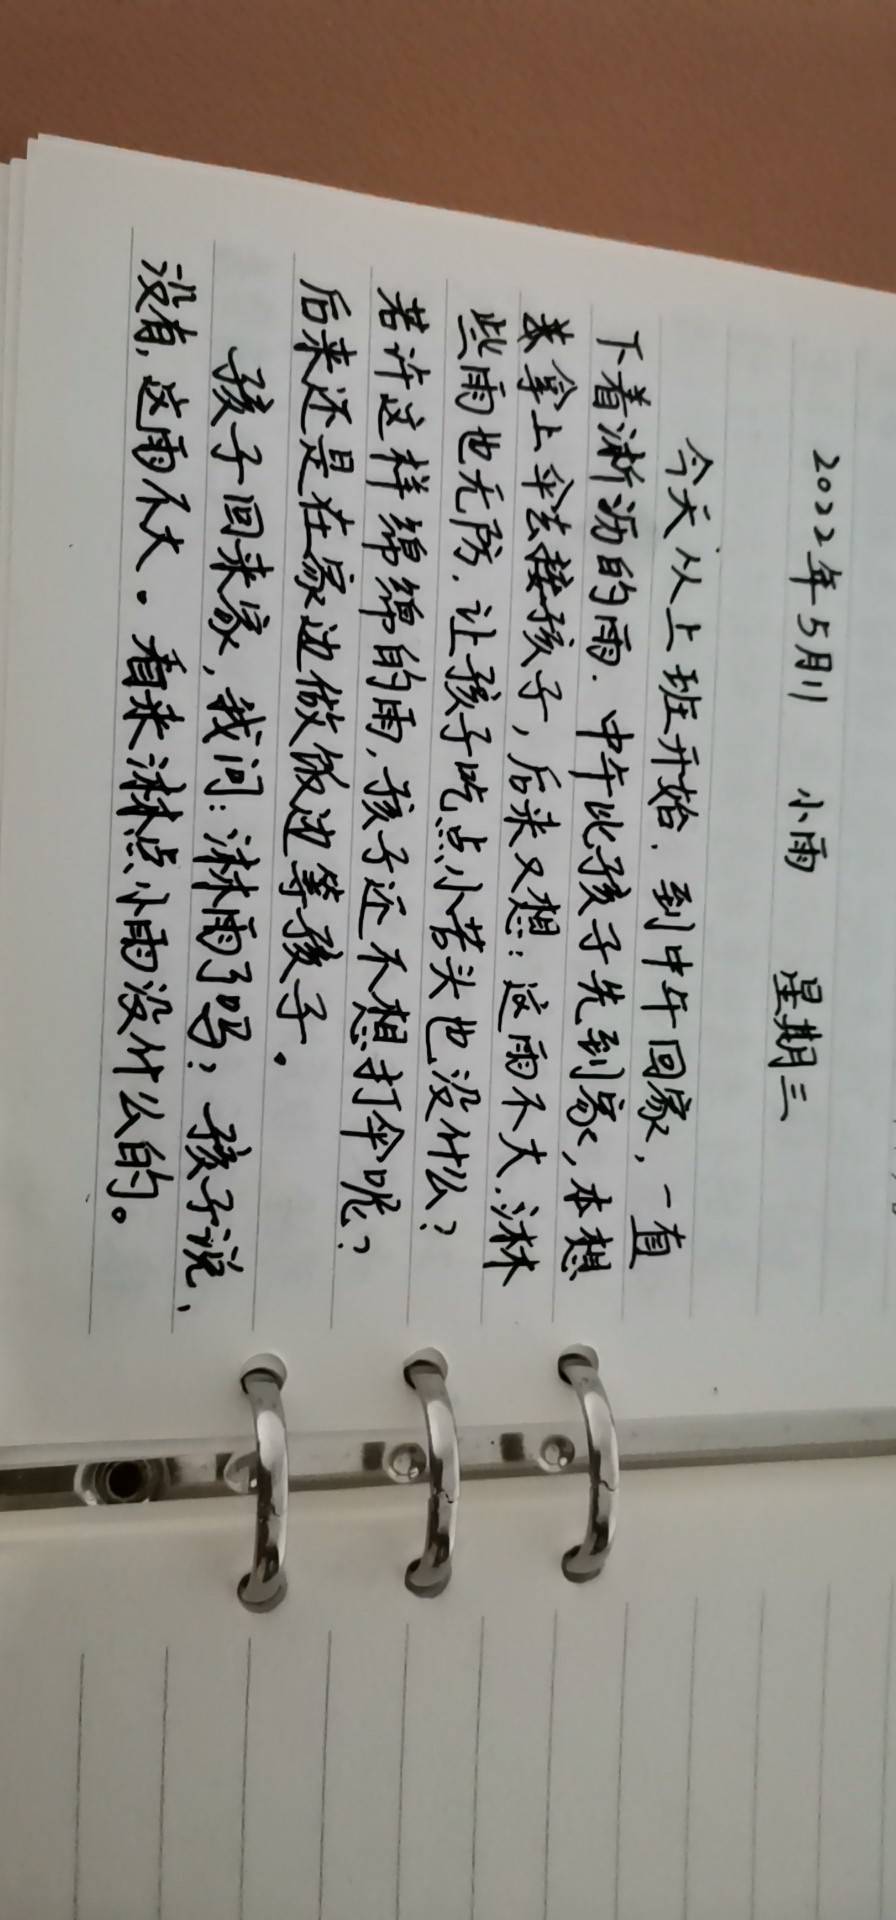 2022年5月11 小雨 星期三
今天从上班开始.到中午回家,一直
下着淅沥的雨.中午比孩子先到家,本想
着拿上伞去接孩子,后来又想:这雨不大.淋
些雨也无防.让孩子吃点小苦头也没什么?
若许这样绵绵的雨,孩子还不想打伞呢?
后来还是在家边做饭边等孩子。
孩子回来家,我问:淋雨了吗?孩子说、
没有,这雨不大。看来淋点小雨没什么的。